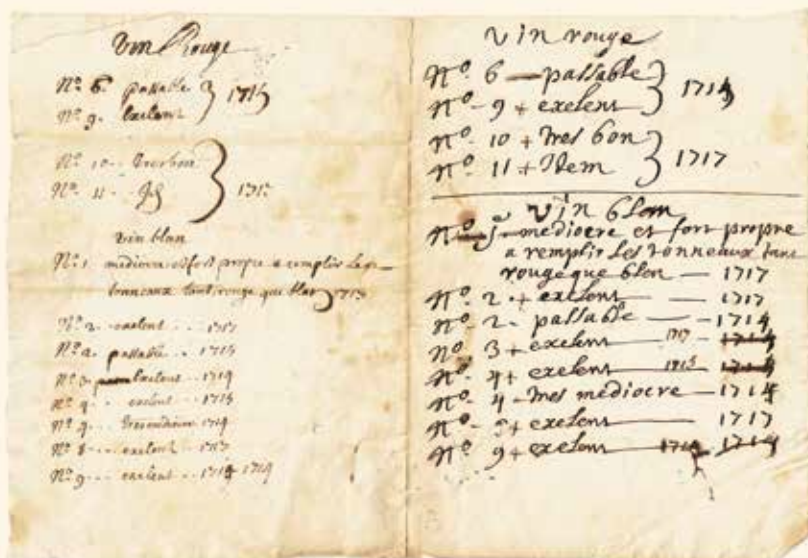 vin Rouge
N.º 6. passable
N.º 9. Exelent
N.º 10.. tresbon
N.º 11..
1717
vin blan
N.º 1 mediocre et fort propre a remplir les
tonneaux tant rouge que blan
N.º 2. exelent .. 1717
N.º 2. passable ..
N.º 3. Exelent .. 1714
N.º 4.. exelent ..
N.º 4.. 1714
exelent .. 1717
N.º 9... exelent .. 1714
vin rouge
Nº. 6 — passable
Nº - 9 + exelens
Nº - 10 + tres bon
Nº. 11 + Item
1717
vin blan
mediocre et fort propre
a remplir Les tonneaux tant
rouge que blan — 1717
Nº - 2 + exelens — 1717
Nº - 2 - passable — 1714
Nº - 3 + exelens — 1717 - 1714
Nº - 4 + exelens — 1714
Nº - 4 - tres mediocre — 1714
exelens — 1717
Nº - 9 + exelens — 1714